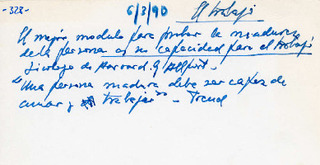 -328- 6/3/90 El trabajo
El mejor modulo para probar la madurez
de la persona es su capacidad para el trabajo
Sicologo de Harvard. G Allport.
"Una persona madura debe ser capaz de
amar y trabajar" - Freud